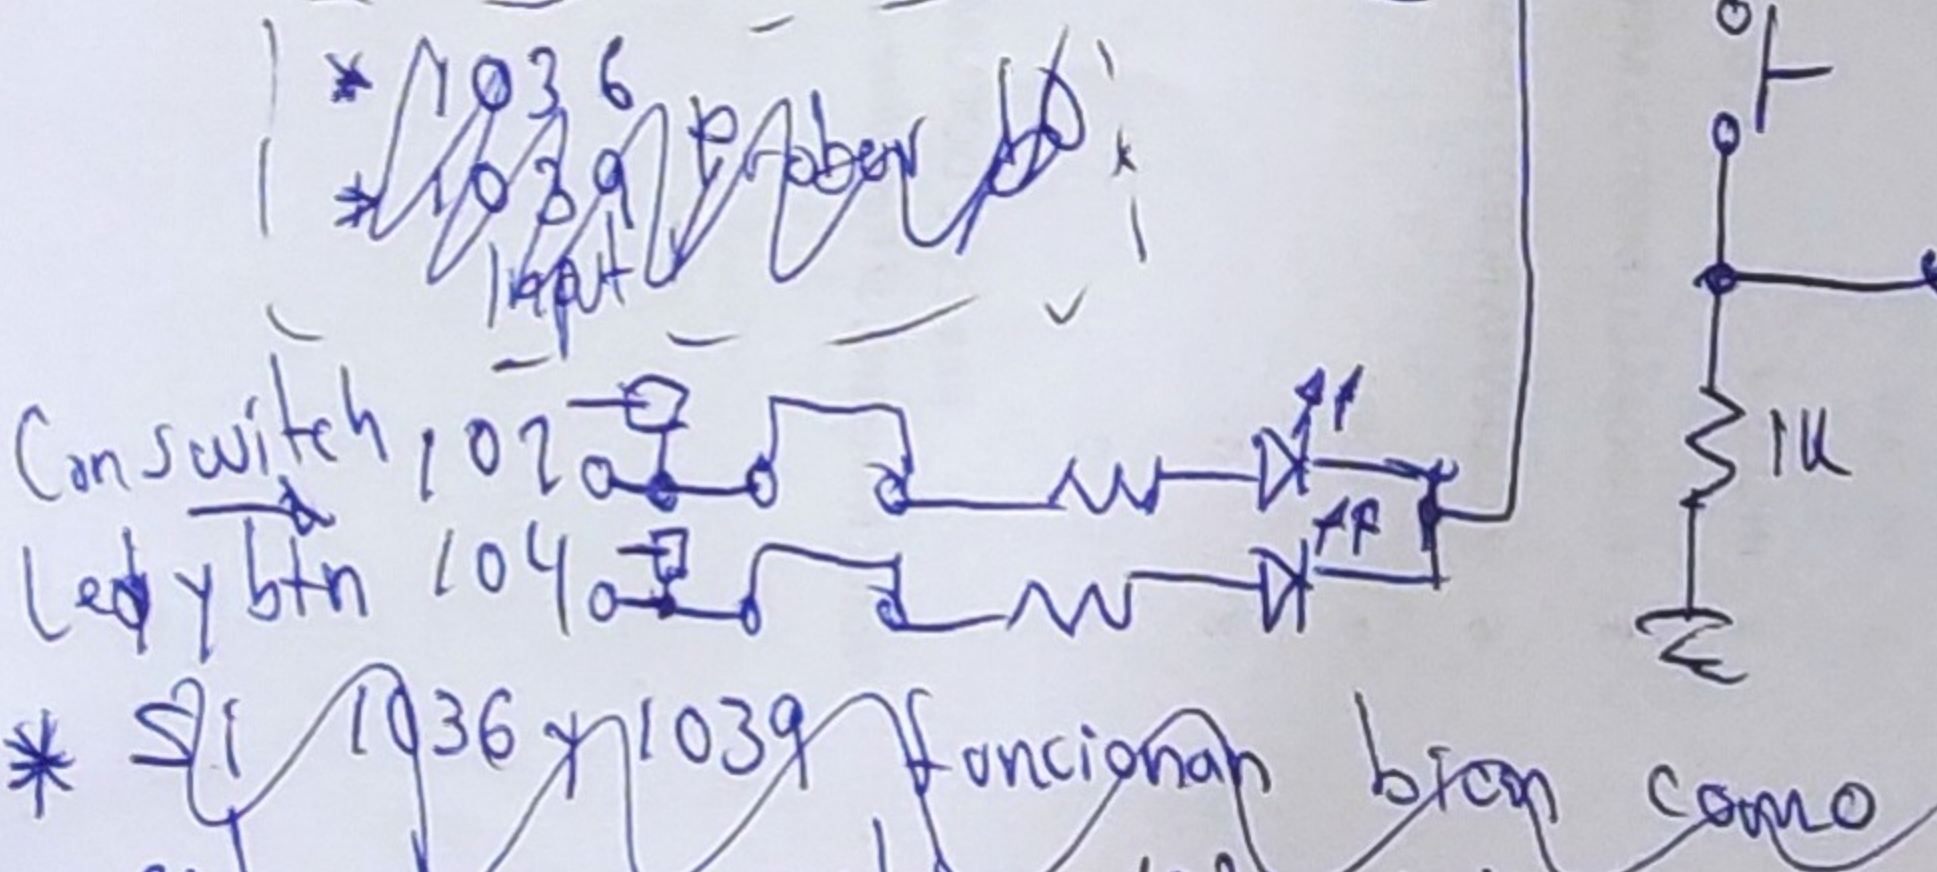 * 1036 Probar
* 1039
Input
Con switch 102
Led y btn 104
1K
* Si 1036 y 1039 funcionan bien como